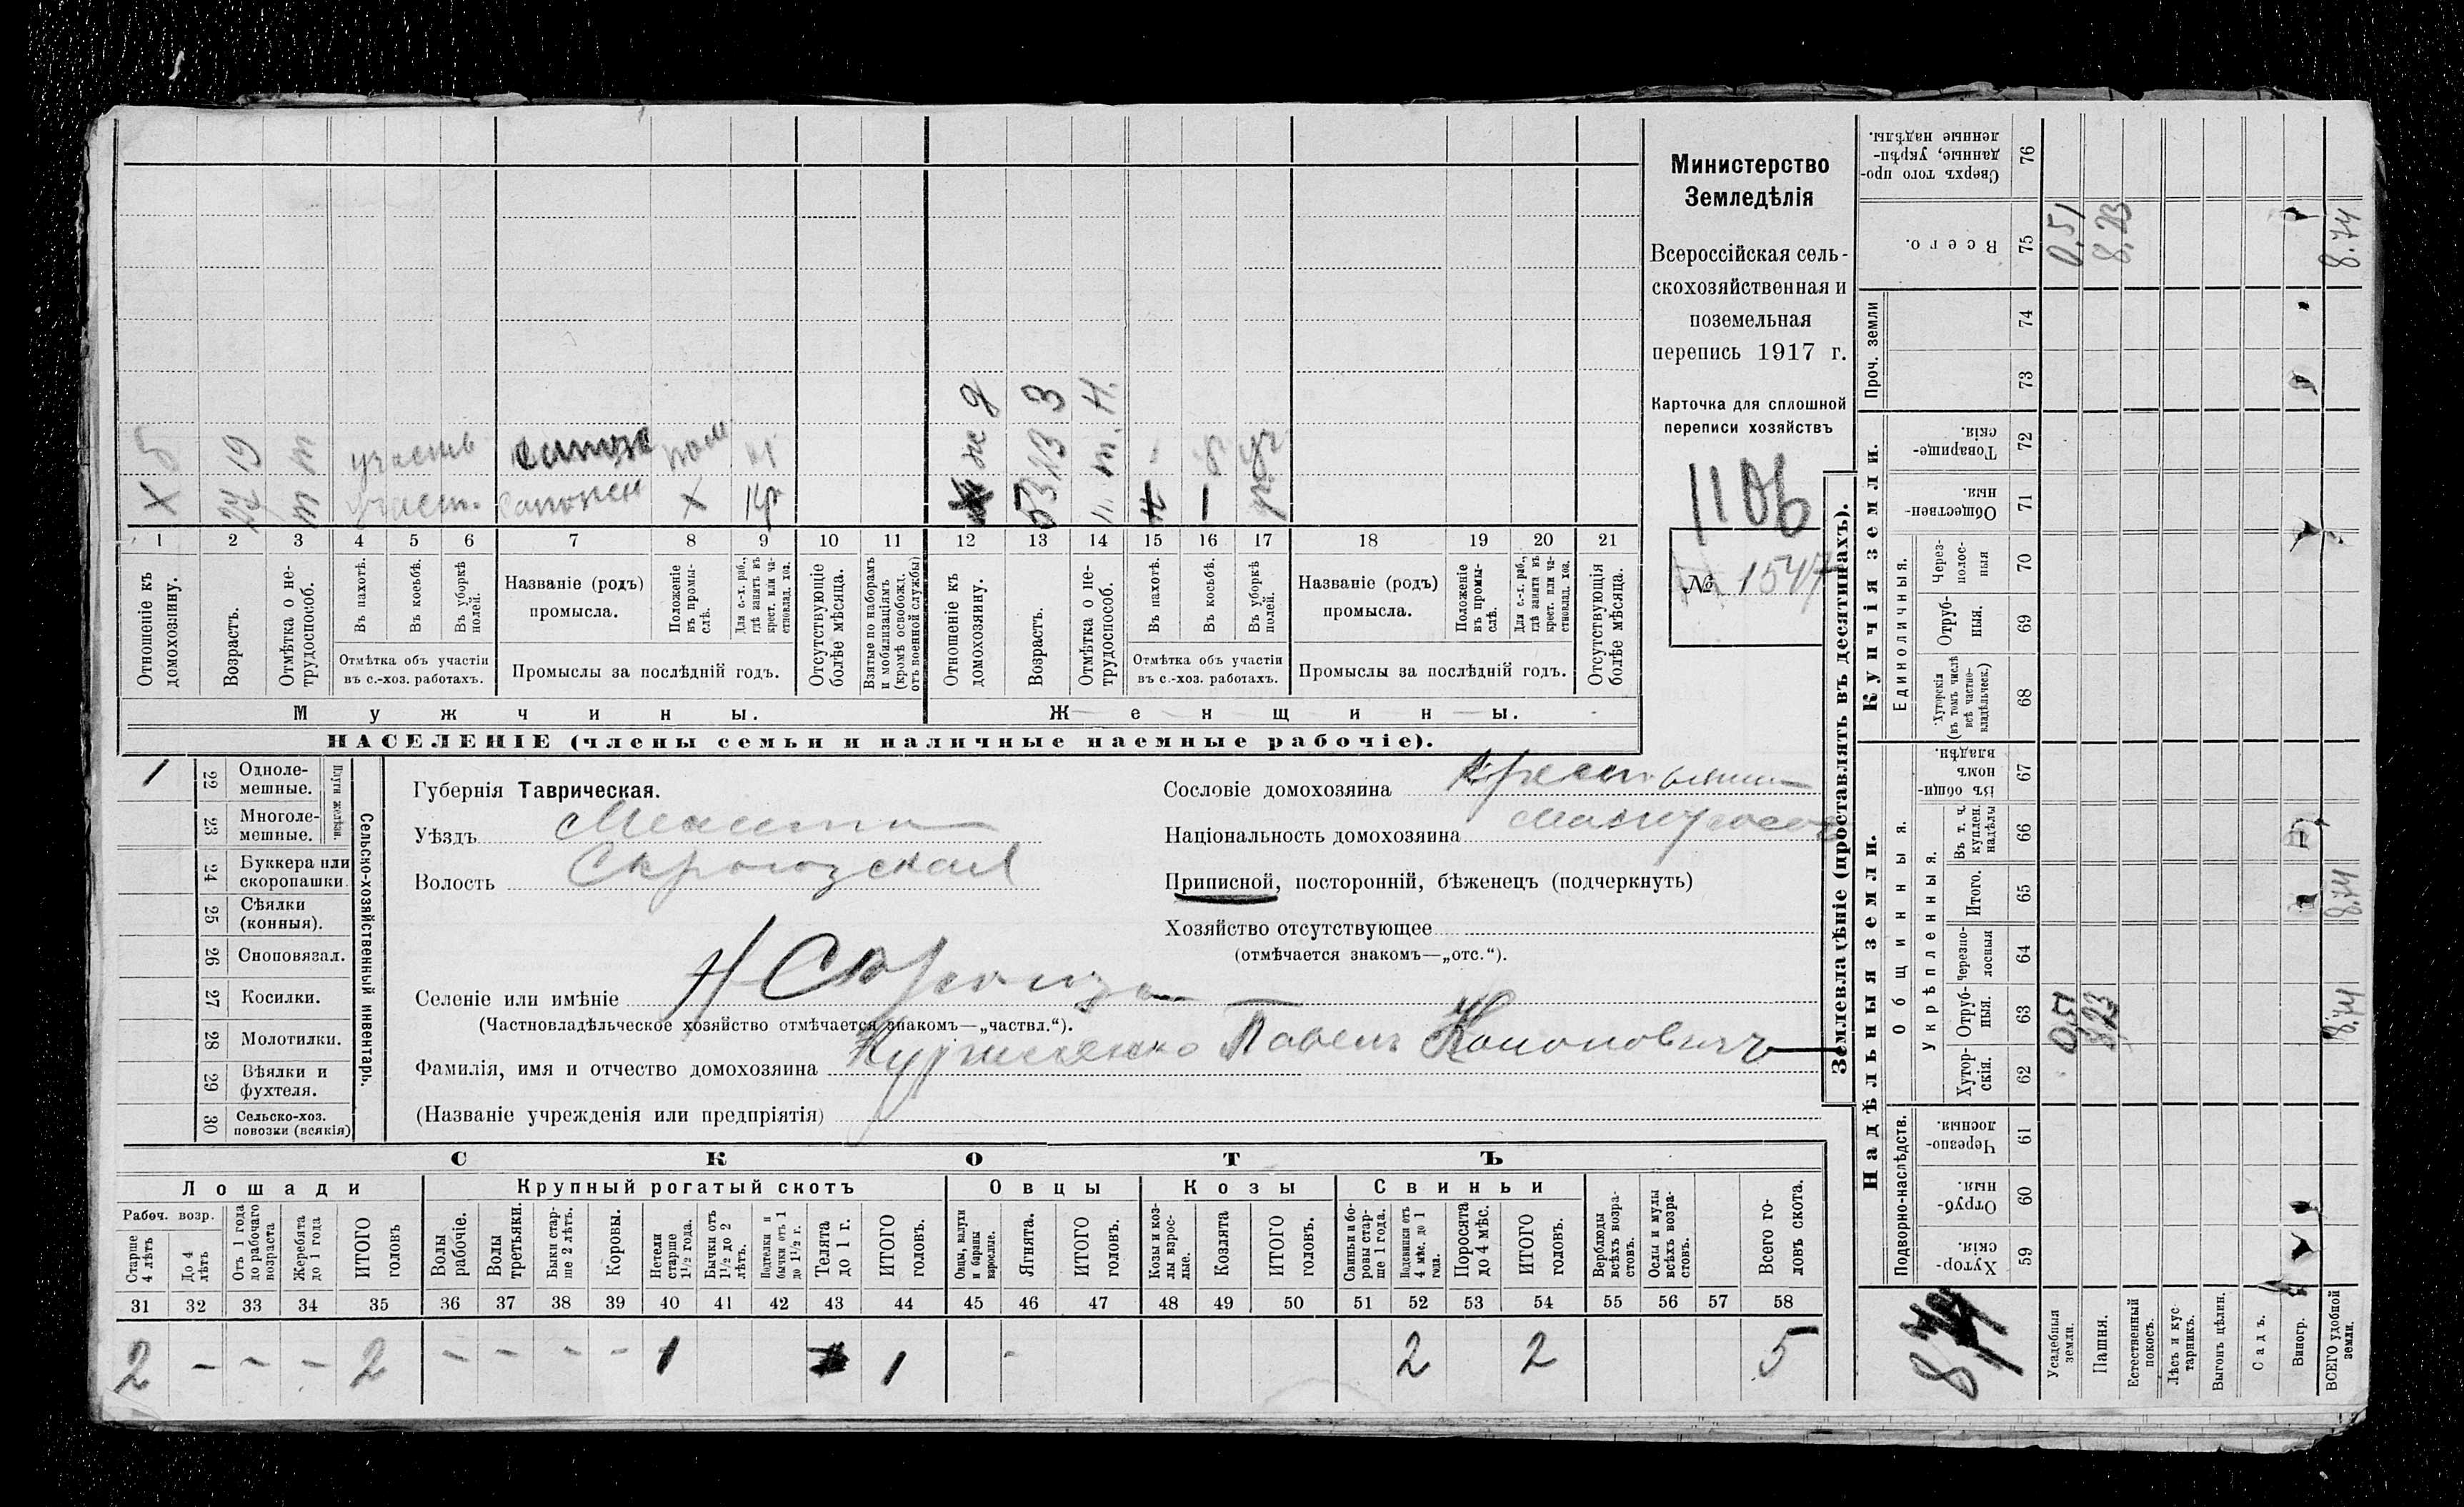 Министерство
Земледѣлія
Всероссійская сель-
скохозяйственная и
поземельная
перепись 1917 г.
Карточка для сплошной
переписи хозяйствъ
1106
№ 1547
Х 5
19
т т
участь
участ.
сапожн
Х пом
кр
ж д
53 13 3
т. н.
1
1 2 3 4 5 6 7 8 9 10 11 12 13 14 15 16 17 18 19 20 21
Отношеніе къ домохозяину.
Возрастъ.
Отмѣтка о не-трудоспособ.
Въ пахотѣ.
Въ косьбѣ.
Въ уборкѣ полей.
Отмѣтка объ участіи
въ с.-хоз. работахъ.
Названіе (родъ)
промысла.
Положеніе въ промы-слѣ.
Для с.-х. раб., гдѣ занятъ въ крест. или ча-стновлад. хоз.
Промыслы за послѣдній годъ.
Отсутствующіе болѣе мѣсяца.
Взятые по наборамъ и мобилизаціямъ (кромѣ освобожд. отъ военной службы)
Отношеніе къ домохозяину.
Возрастъ.
Отмѣтка о не-трудоспособ.
Въ пахотѣ.
Въ косьбѣ.
Въ уборкѣ полей.
Отмѣтка объ участіи
въ с.-хоз. работахъ.
Названіе (родъ)
промысла.
Положеніе въ промы-слѣ.
Для с.-х. раб., гдѣ занятъ въ крест. или ча-стновлад. хоз.
Промыслы за послѣдній годъ.
Отсутствующія болѣе мѣсяца.
Мужчины. Женщины.
НАСЕЛЕНІЕ (члены семьи и наличные наемные рабочіе).
1 22 Одноле-мешные.
23 Многоле-мешные.
Плуги желѣзн.
24 Буккера или скоропашки
25 Сѣялки (конныя).
26 Сноповязал.
27 Косилки.
28 Молотилки.
29 Вѣялки и фухтеля.
30 Сельско-хоз. повозки (всякія)
Сельско-хозяйственный инвентарь.
Губернія Таврическая.
Уѣздъ Мелитоп
Волость Сѣрогозская
Селеніе или имѣніе Н Сѣрогозы
(Частновладѣльческое хозяйство отмѣчается знакомъ—„частвл.“).
Фамилія, имя и отчество домохозяина Павелъ Кононовичъ
(Названіе учрежденія или предпріятія)
Сословіе домохозяина крестьянин
Національность домохозяина малоросс
Приписной, посторонній, бѣженецъ (подчеркнуть)
Хозяйство отсутствующее
(отмѣчается знакомъ—„отс.“).
СКОТЪ
Лошади Крупный рогатый скотъ Овцы Козы Свиньи
Рабоч. возр.
Старше 4 лѣтъ
До 4 лѣтъ
Отъ 1 года до рабочаго возраста
Жеребята до 1 года
ИТОГО головъ
Волы рабочіе.
Волы третьяки.
Быки стар-ше 2 лѣтъ.
Коровы.
Нетели старше 1½ года.
Бычки отъ 1½ до 2 лѣтъ.
Подтелки и бычки отъ 1 до 1½ г.
Телята до 1 г.
ИТОГО головъ.
Овцы, валухи и бараны взрослые.
Ягнята.
ИТОГО головъ.
Козы и коз-лы взрос-лые.
Козлята
ИТОГО головъ.
Свиньи и бо-ровы стар-ше 1 года.
Подсвинки отъ 4 мѣс. до 1 года.
Поросята до 4 мѣс.
ИТОГО головъ.
Верблюды всѣхъ возра-стовъ.
Ослы и мулы всѣхъ возра-стовъ.
Всего го-ловъ скота.
31 32 33 34 35 36 37 38 39 40 41 42 43 44 45 46 47 48 49 50 51 52 53 54 55 56 57 58
2 - - - 2 - - - - 1 1 - 2 2 5
Землевладѣніе (проставлять въ десятинахъ).
Надѣльныя земли. Купчія земли. Проч. земли
Подворно-наслѣдств.
Общинныя.
Укрѣпленныя.
Единоличныя.
Хутор-скія. 59
Отруб-ныя. 60
Черезпо-лосныя. 61
Хутор-скія. 62
Отруб-ныя. 63
Черезпо-лосныя 64
Итого. 65
Въ т. ч. куплен. надѣлы 66
Въ общин-номъ владѣн. 67
Хуторскія (въ томъ числѣ всѣ частно-владѣльческ.) 68
Отруб-ныя. 69
Через-полос-ныя 70
Обществен-ныя. 71
Товарище-скія. 72
73
74
Всего. 75
Сверхъ того про-данные, укрѣп-ленные надѣлы. 76
Усадебныя земли. 0,51 0.51
Пашня. 8,23 8.23
Естественный покосъ.
Лѣсъ и кус-тарникъ.
Выгонъ цѣлин.
Садъ.
Виногр.
ВСЕГО удобной земли. 8.74 8.74 8.74